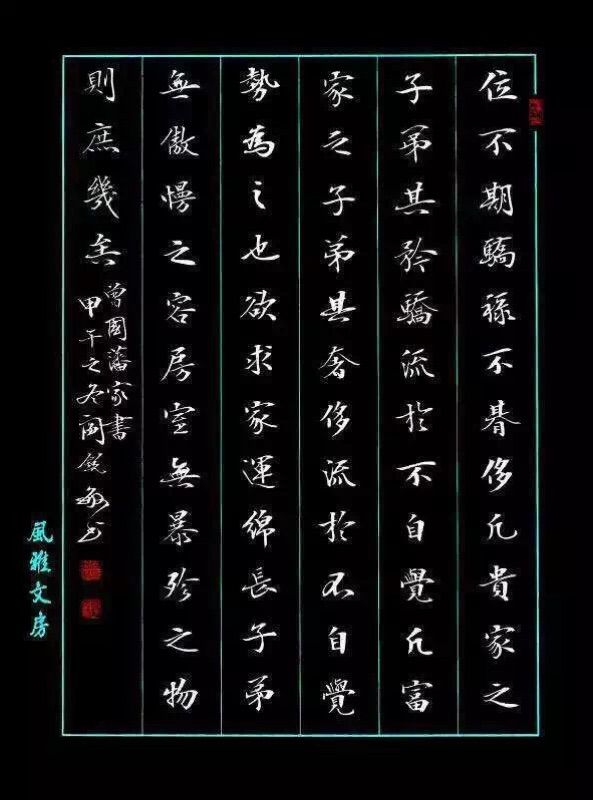 位不期驕祿不朞侈凡貴家之
子弟其矜驕流於不自覺凡富
家之子弟其奢侈流於不自覺
勢為之也欲求家運綿長子弟
無傲慢之容房室無暴殄之物
則庶幾矣
曾國藩家書
甲午之冬閆銳敏书
風雅文房